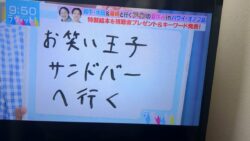 9:50
特製絵本を視聴者プレゼント&キーワード発表!
お笑い王子
サンドバー
へ行く